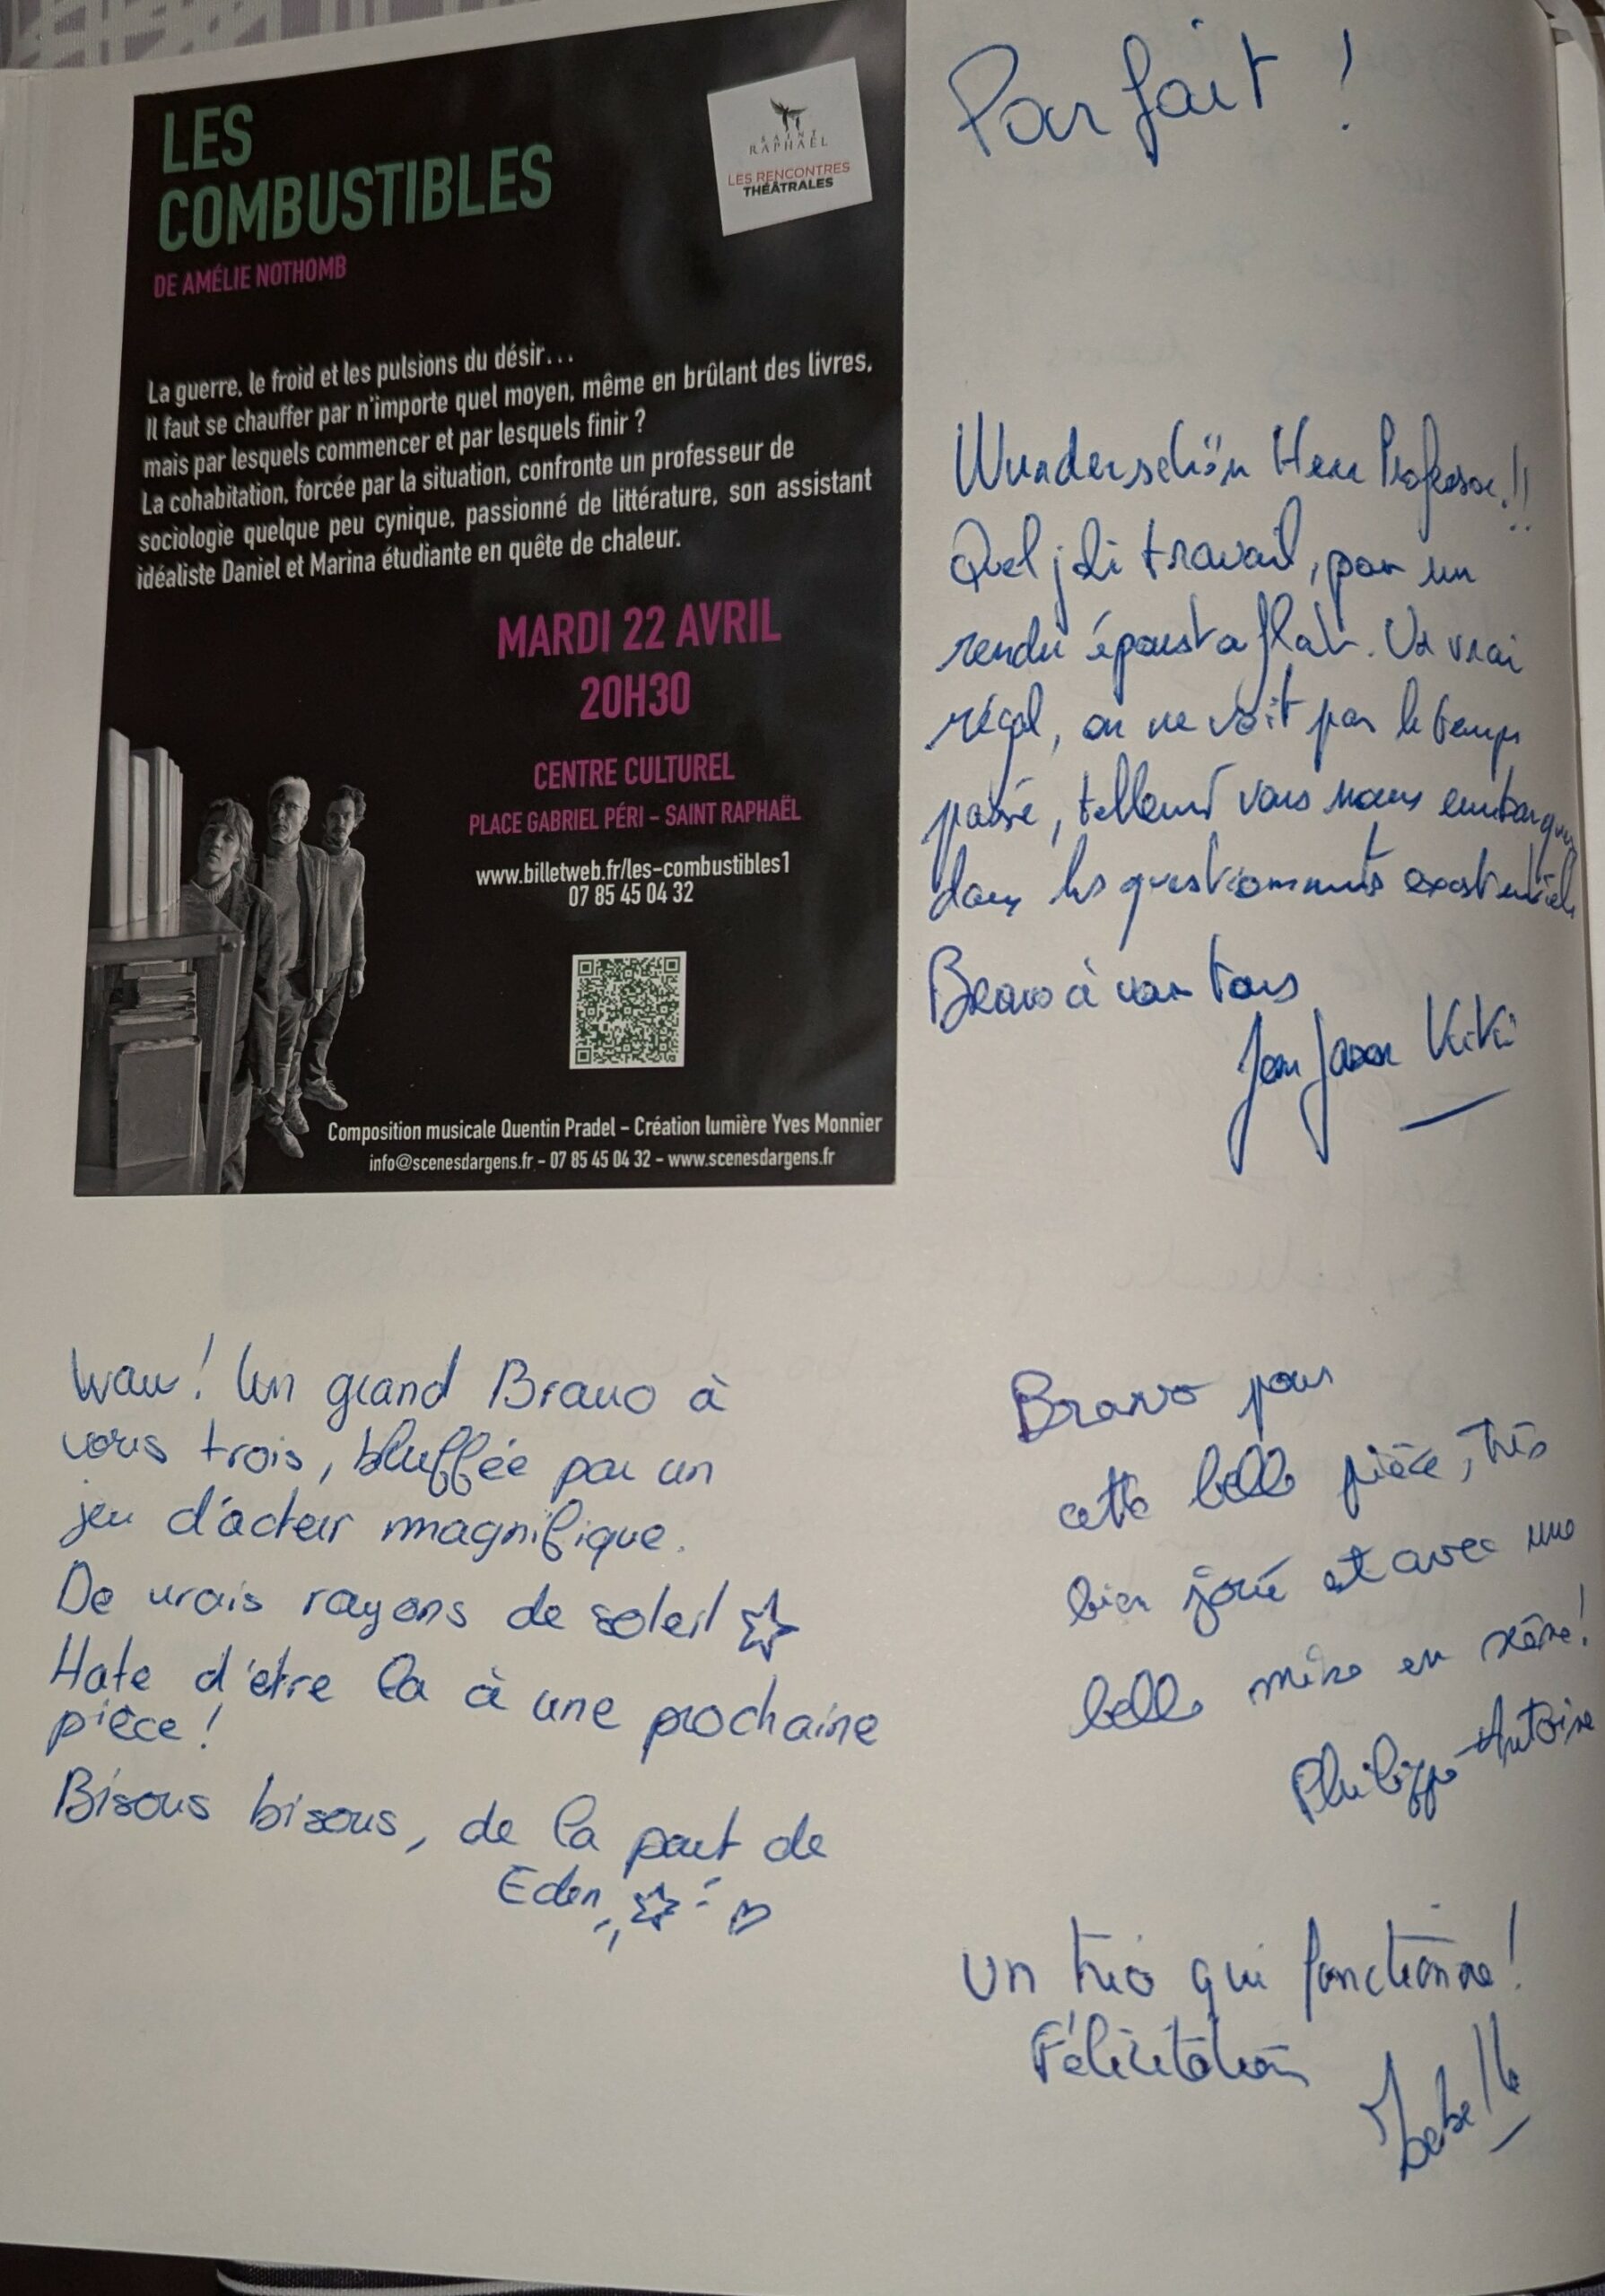 LES
COMBUSTIBLES
DE AMÉLIE NOTHOMB
SAINT
RAPHAËL
LES RENCONTRES
THÉÂTRALES
La guerre, le froid et les pulsions du désir...
Il faut se chauffer par n'importe quel moyen, même en brûlant des livres,
mais par lesquels commencer et par lesquels finir ?
La cohabitation, forcée par la situation, confronte un professeur de
sociologie quelque peu cynique, passionné de littérature, son assistant
idéaliste Daniel et Marina étudiante en quête de chaleur.
MARDI 22 AVRIL
20H30
CENTRE CULTUREL
PLACE GABRIEL PÉRI – SAINT RAPHAËL
www.billetweb.fr/les-combustibles1
07 85 45 04 32
Composition musicale Quentin Pradel – Création lumière Yves Monnier
info@scenesdargens.fr – 07 85 45 04 32 – www.scenesdargens.fr
Parfait !
Wunderschön Herr Professor !!
Quel joli travail, pour un
rendu époustaflat. Un vrai
régal, on ne voit pas le temps
passé, tellement vous nous embarquez
dans les questionnements existentiels
Bravo à vous tous
Jean Kiki
Waw ! Un grand Bravo à
vous trois, bluffée par un
jeu d'acteur magnifique.
De vrais rayons de soleil ☆
Hate d'être la à une prochaine
pièce !
Bisous bisous, de la part de
Eden ☆ ♡
Bravo pour
cette belle pièce, très
bien joué et avec une
belle mise en scène !
Philippe-Antoine
Un trio qui fonctionne !
Félicitation
Isabelle